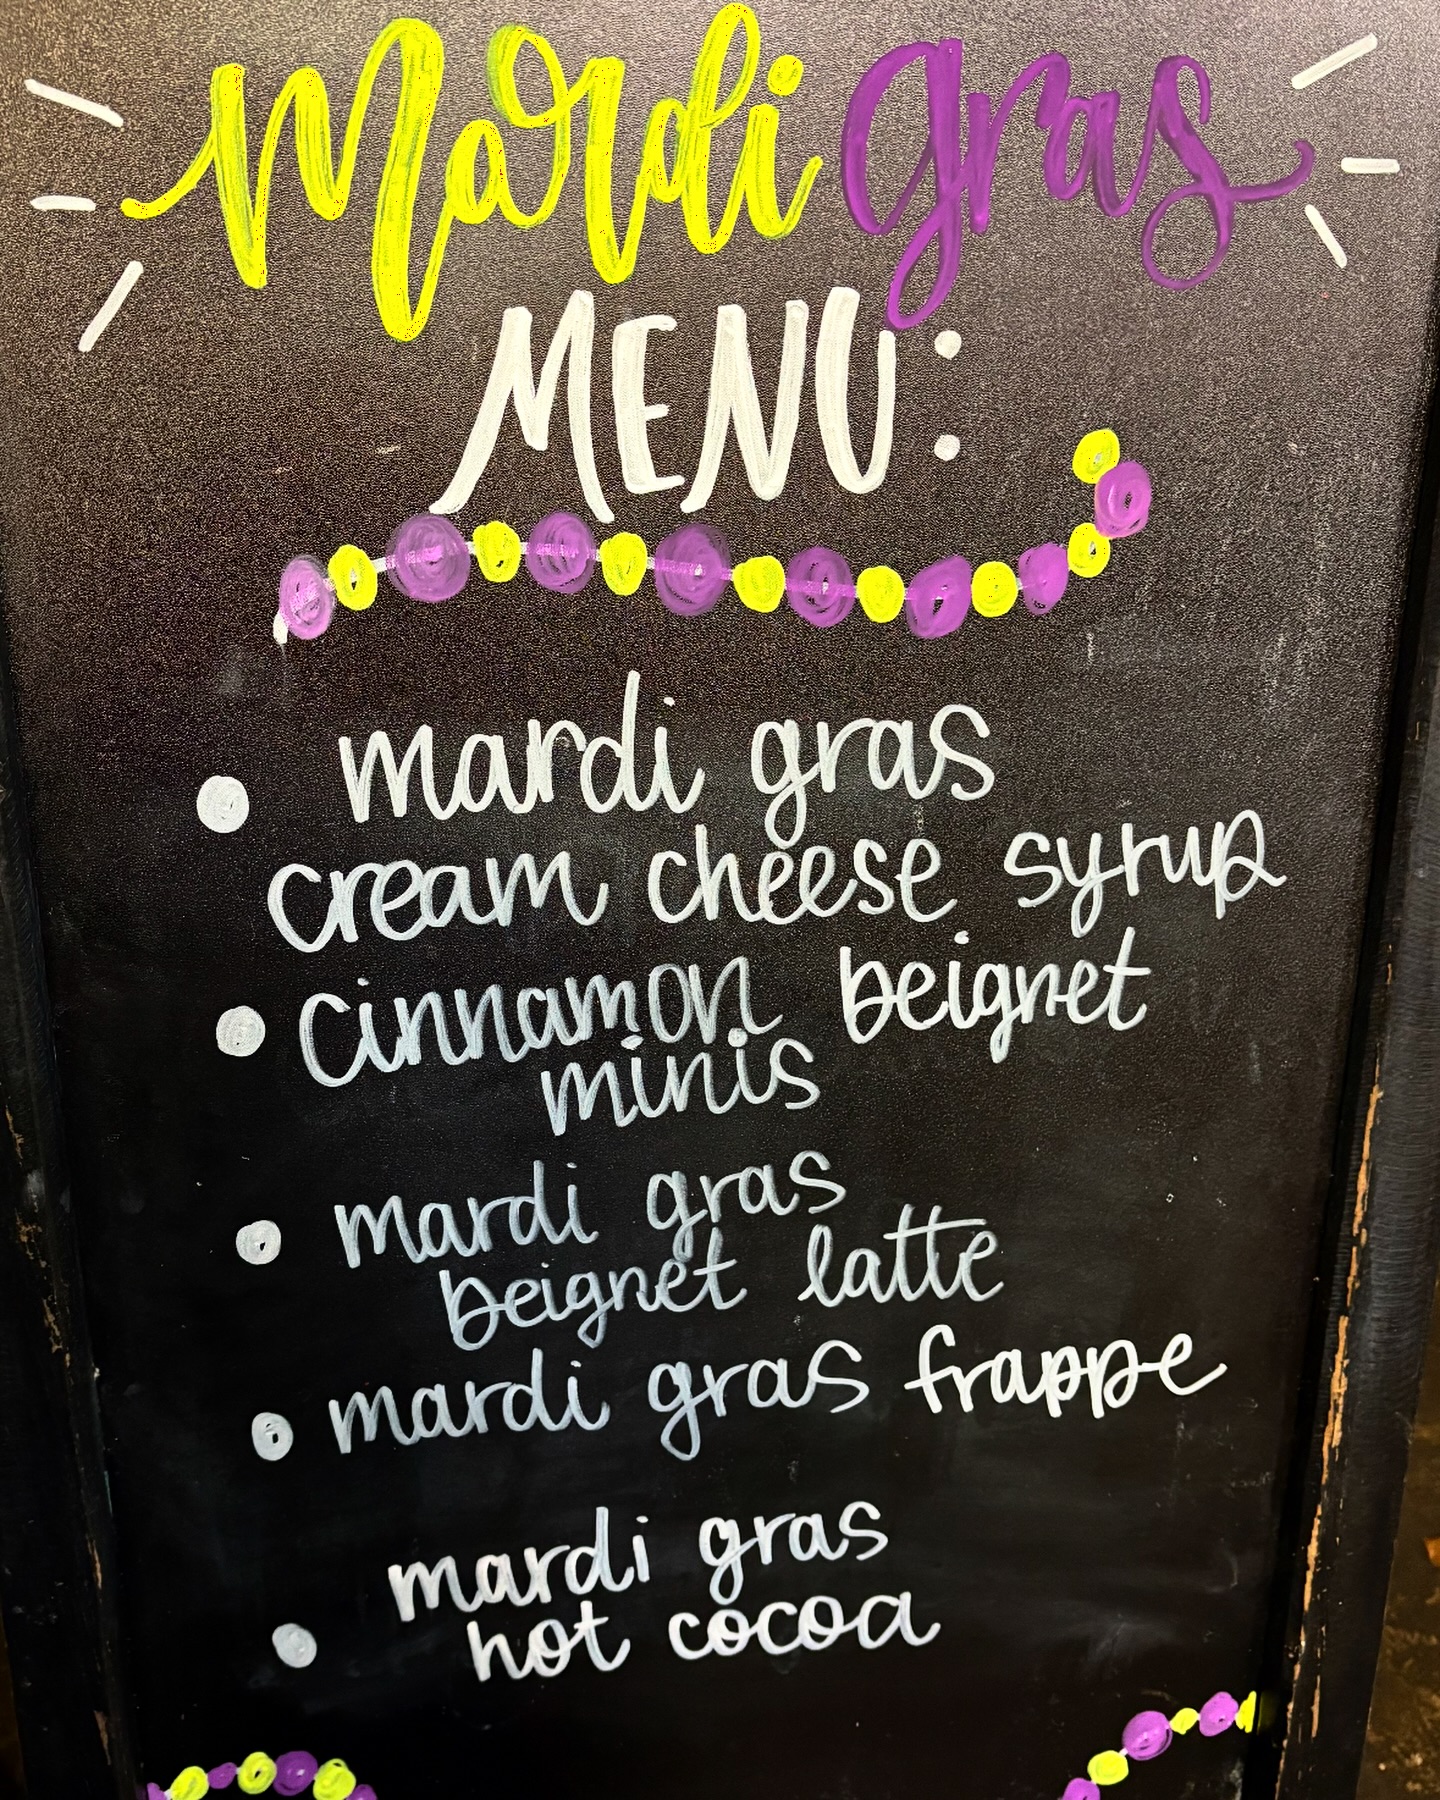 mardi gras
MENU:
• mardi gras
cream cheese syrup
• cinnamon beignet
minis
• mardi gras
beignet latte
• mardi gras frappe
mardi gras
• hot cocoa